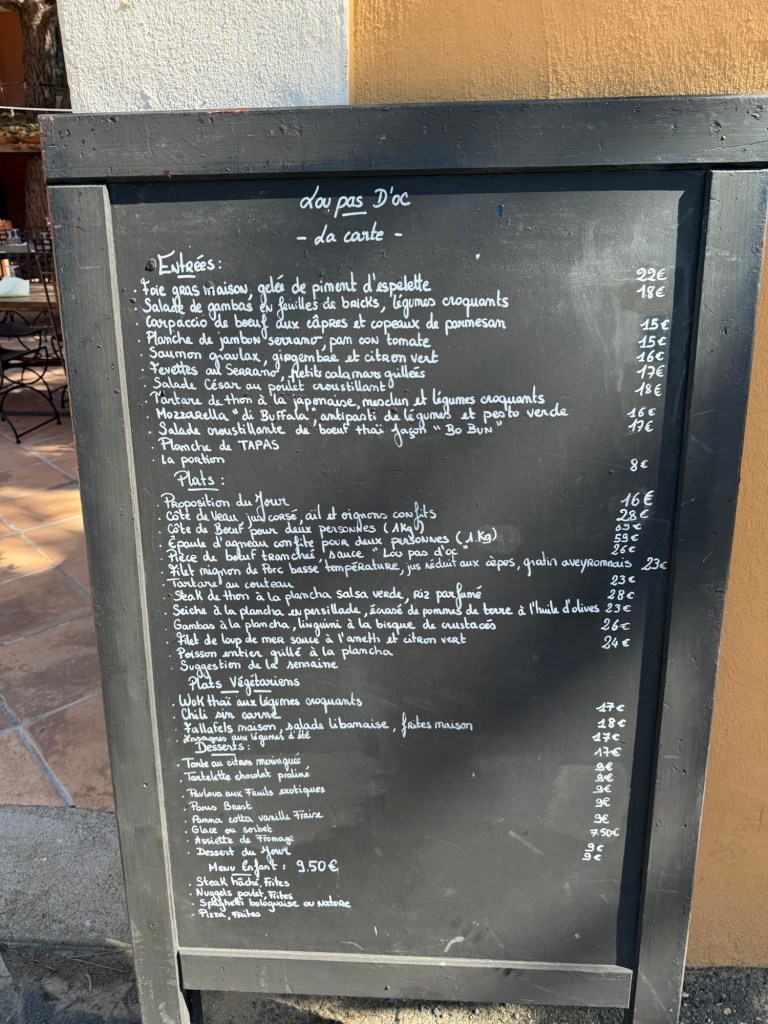 Lou pas D'oc
- La carte -
Entrées :
. Foie gras maison, gelée de piment d'espelette 22€
. Salade de gambas en feuilles de bricks, légumes croquants 18€
. Carpaccio de boeuf aux câpres et copeaux de parmesan
. Planche de jambon serrano, pan con tomate 15€
. Saumon gravlax, gingembre et citron vert 15€
. Fevettes au Serrano, Petits calamars grillées 16€
. Salade César au poulet croustillant 17€
. Tartare de thon à la japonaise, mesclun et légumes croquants 18€
. Mozzarella "di Buffala", antipasti de légumes et pesto verde 16€
. Salade croustillante de boeuf thaï façon "Bo Bun" 17€
. Planche de TAPAS
. La portion 8€
Plats :
. Proposition du Jour 16€
. Côte de Veau jus corsé, ail et oignons confits 28€
. Côte de Boeuf pour deux personnes (1Kg) 65€
. Épaule d'agneau confite pour deux personnes (1.Kg) 59€
. Pièce de boeuf tranchée, sauce "Lou pas d'oc" 26€
. Filet mignon de Porc basse température, jus réduit aux cèpes, gratin aveyronnais 23€
. Tartare au couteau 23€
. Steak de thon à la plancha salsa verde, riz parfumé 28€
. Seiche à la plancha en persillade, écrasé de pomme de terre à l'huile d'olives 23€
. Gambas à la plancha, linguini à la bisque de crustacés 26€
. Filet de loup de mer sauce à l'aneth et citron vert 24€
. Poisson entier grillé à la plancha
. Suggestion de la semaine
Plats Végétariens
. Wok thaï aux légumes croquants 17€
. Chili sin carne 18€
. Fallafels maison, salade libanaise, frites maison 17€
. Lasagnes aux légumes d'été 17€
Desserts :
. Tarte au citron meringuée 9€
. Tartelette chocolat praliné 9€
. Pavlova aux Fruits exotiques 9€
. Paris Brest 9€
. Panna cotta vanille Fraise 9€
. Glace ou sorbet 7.50€
. Assiette de Fromage 9€
. Dessert du Jour 9€
Menu Enfant : 9.50€
. Steak hâché, Frites
. Nuggets poulet, Frites
. Spaghetti bolognaise ou NATURE
. Pizza, Frites